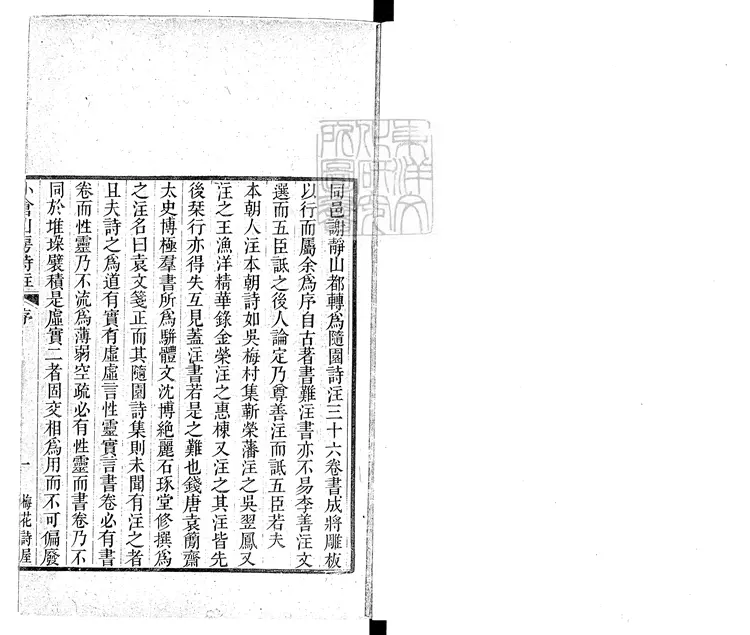 同邑謝靜山都轉爲隨園詩注三十六卷書成將雕板
以行而屬余爲序自古著書難注書亦不易李善注文
選而五臣詆之後人論定乃尊善注而詆五臣若夫
本朝人注本朝詩如吳梅村集靳榮藩注之吳翌鳳又
注之王漁洋精華錄金榮注之惠棟又注之其注皆先
後栞行亦得失互見蓋注書若是之難也錢唐袁簡齋
太史博極羣書所爲駢體文沈博絶麗石琢堂修撰爲
之注名曰袁文箋正而其隨園詩集則未聞有注之者
且夫詩之爲道有實有虛虛言性靈實言書卷必有書
卷而性靈乃不流爲薄弱空疏必有性靈而書卷乃不
同於堆垛襞積是虛實二者固交相爲用而不可偏廢
小倉山房詩注 序 一 梅花詩屋
東洋文化研究所圖書